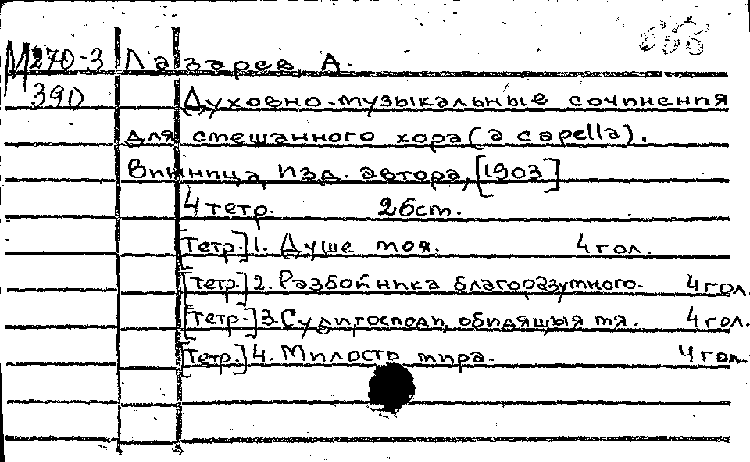 М270-3 Лазарев, А.
390 Духовно-музыкальные сочинения
для смешанного хора (a capella).
Винница, Изд. автора, [1903]
4 тетр. 26 ст.
[Тетр.] 1. Душе моя. 4 гол.
[Тетр.] 2. Разбойника благоразумного. 4 гол.
[Тетр.] 3. Суди господи, обидящыя мя. 4 гол.
[Тетр.] 4. Милость мира. 4 гол.